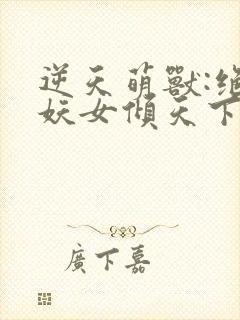 逆天萌獸:絕
妖女傾天下
廣下嘉